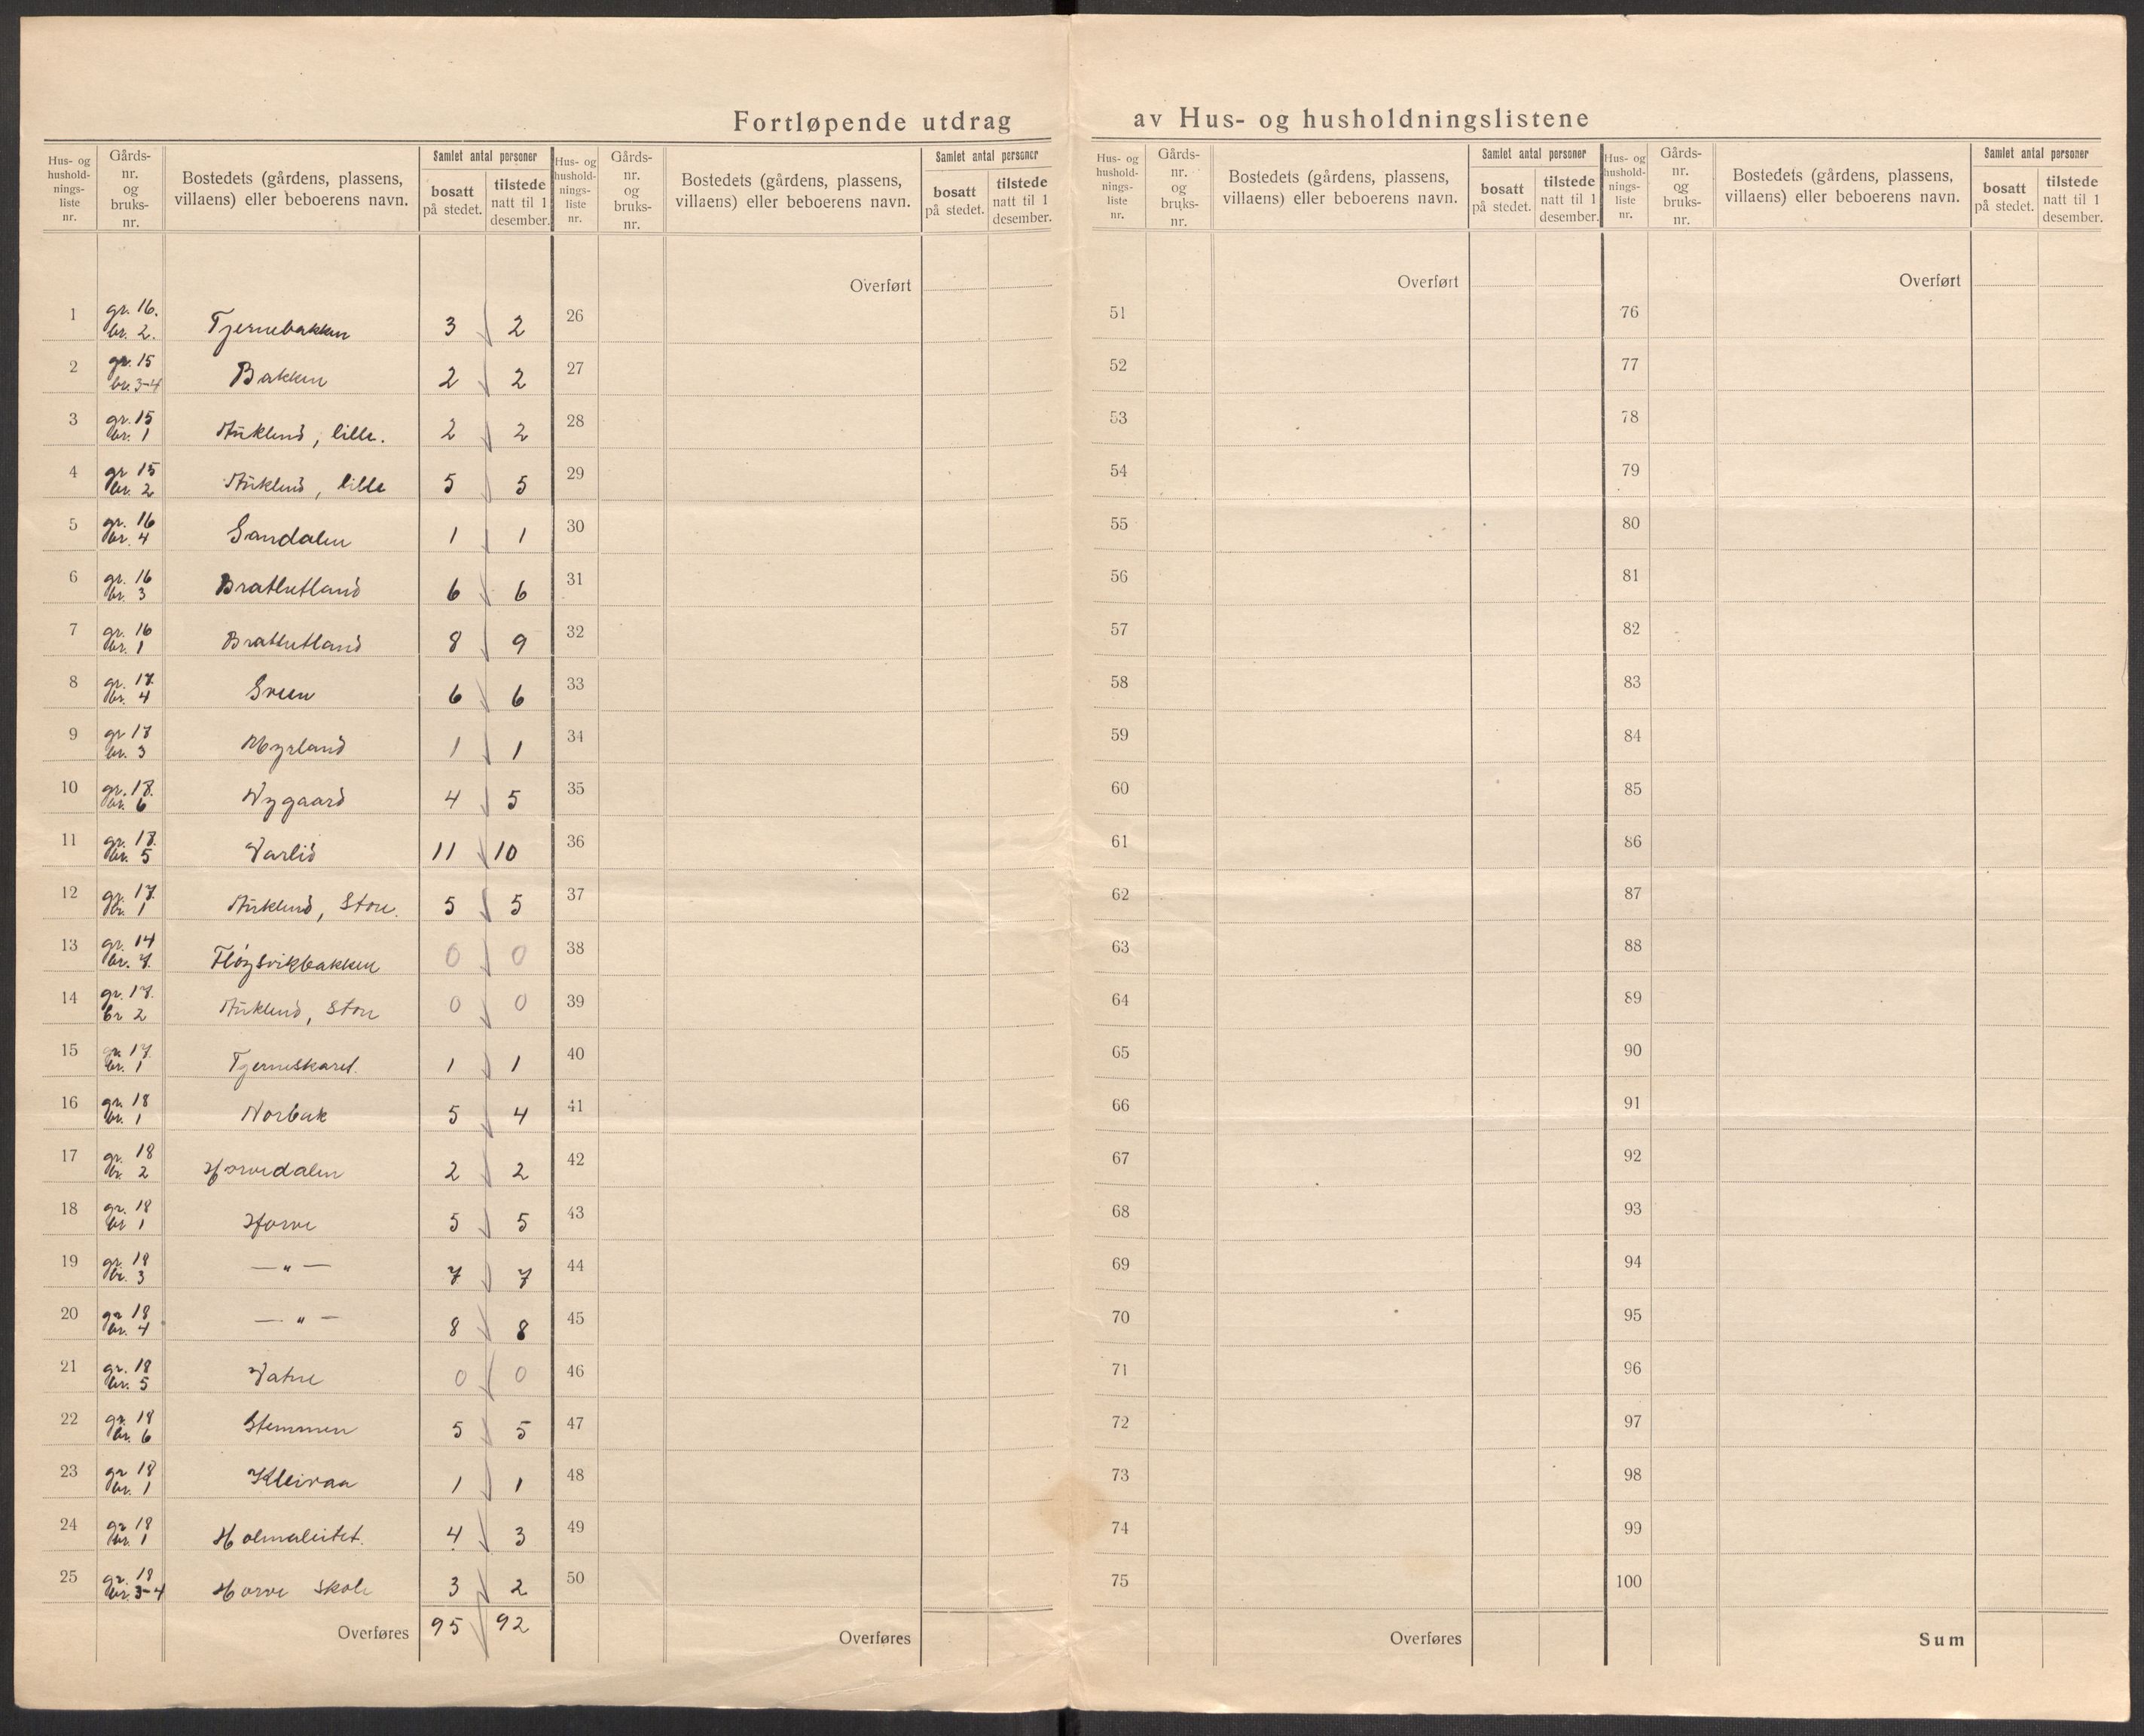 Fortløpende utdrag av Hus- og husholdningslistene
Hus- og
hushold-
nings-
liste
nr.
Gårds-
nr.
og
bruks-
nr.
Bostedets (gårdens, plassens,
villaens) eller beboerens navn.
Samlet antal personer
bosatt
på stedet.
tilstede
natt til 1
desember.
Hus- og
hushold-
nings-
liste
nr.
Gårds-
nr.
og
bruks-
nr.
Bostedets (gårdens, plassens,
villaens) eller beboerens navn.
Samlet antal personer
bosatt
på stedet.
tilstede
natt til 1
desember.
Hus- og
hushold-
nings-
liste
nr.
Gårds-
nr.
og
bruks-
nr.
Bostedets (gårdens, plassens,
villaens) eller beboerens navn.
Samlet antal personer
bosatt
på stedet.
tilstede
natt til 1
desember.
Hus- og
hushold-
nings-
liste
nr.
Gårds-
nr.
og
bruks-
nr.
Bostedets (gårdens, plassens,
villaens) eller beboerens navn.
Samlet antal personer
bosatt
på stedet.
tilstede
natt til 1
desember.
1 gr. 16. br. 2. Tjernebakken 3 2
2 gr. 15 br. 3-4 Bakken 2 2
3 gr. 15 br. 1 Auklend, lille. 2 2
4 gr 15 br. 2 Auklend, lille 5 5
5 gr. 16 br. 4 Sandalen 1 1
6 gr. 16 br. 3 Bratlutland 6 6
7 gr. 16 br. 1 Bratlutland 8 9
8 gr. 17. br. 4 Sveen 6 6
9 gr 17 br. 3 Myrland 1 1
10 gr. 17. br. 6 Nygaard 4 5
11 gr. 17. br. 5 Varlid 11 10
12 gr. 17. br. 1 Auklend, Store. 5 5
13 gr. 14 br. 7. Fløysvikbakken 0 0
14 gr. 17. br 2 Auklend, Store 0 0
15 gr. 17. br. 1 Tjerneskaret. 1 1
16 gr. 18 br. 1 Norbæk 5 4
17 gr. 18 br. 2 Horvedalen 2 2
18 gr. 18 br 1 Horve 5 5
19 gr. 18 br. 3 — " — 7 7
20 gr 18 br. 4 — " — 8 8
21 gr. 18 br. 5 Vatne 0 0
22 gr. 18 br. 6 Stemmen 5 5
23 gr 18 br. 1 Kleivaa 1 1
24 gr 18 br. 1 Holmaleitet. 4 3
25 gr. 18 br. 3-4 Horve skole 3 2
Overføres 95 92
Overført
26
27
28
29
30
31
32
33
34
35
36
37
38
39
40
41
42
43
44
45
46
47
48
49
50
Overføres
Overført
51
52
53
54
55
56
57
58
59
60
61
62
63
64
65
66
67
68
69
70
71
72
73
74
75
Overføres
Overført
76
77
78
79
80
81
82
83
84
85
86
87
88
89
90
91
92
93
94
95
96
97
98
99
100
Sum